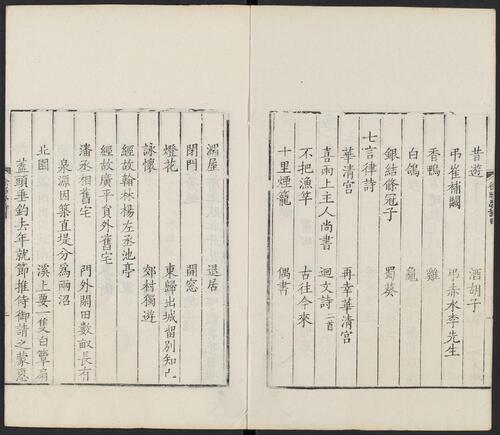 昔遊 酒胡子
弔崔補闕 弔赤水李先生
香鴨 雞
白鴿 龜
銀結條冠子 蜀葵
七言律詩
華清宮 再幸華清宮
喜雨上主人尚書 迴文詩二首
不把漁竿 古往今來
十里煙籠 偶書
潤屋 退居
閉門 開窓
燈花 東歸出城留別知己
詠懷 郊村獨遊
經故翰林楊左丞池亭
經故廣平員外舊宅
潘丞相舊宅 門外閑田數畝長有
泉源因築直堤分爲兩沼
北園 溪上要一隻白簟扇
蓋頭垂釣去年就節推侍御請之蒙恩